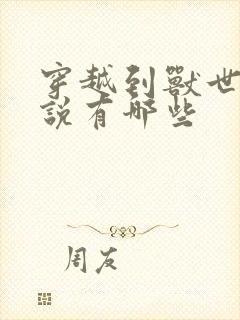 穿越到獸世
說有哪些
周友